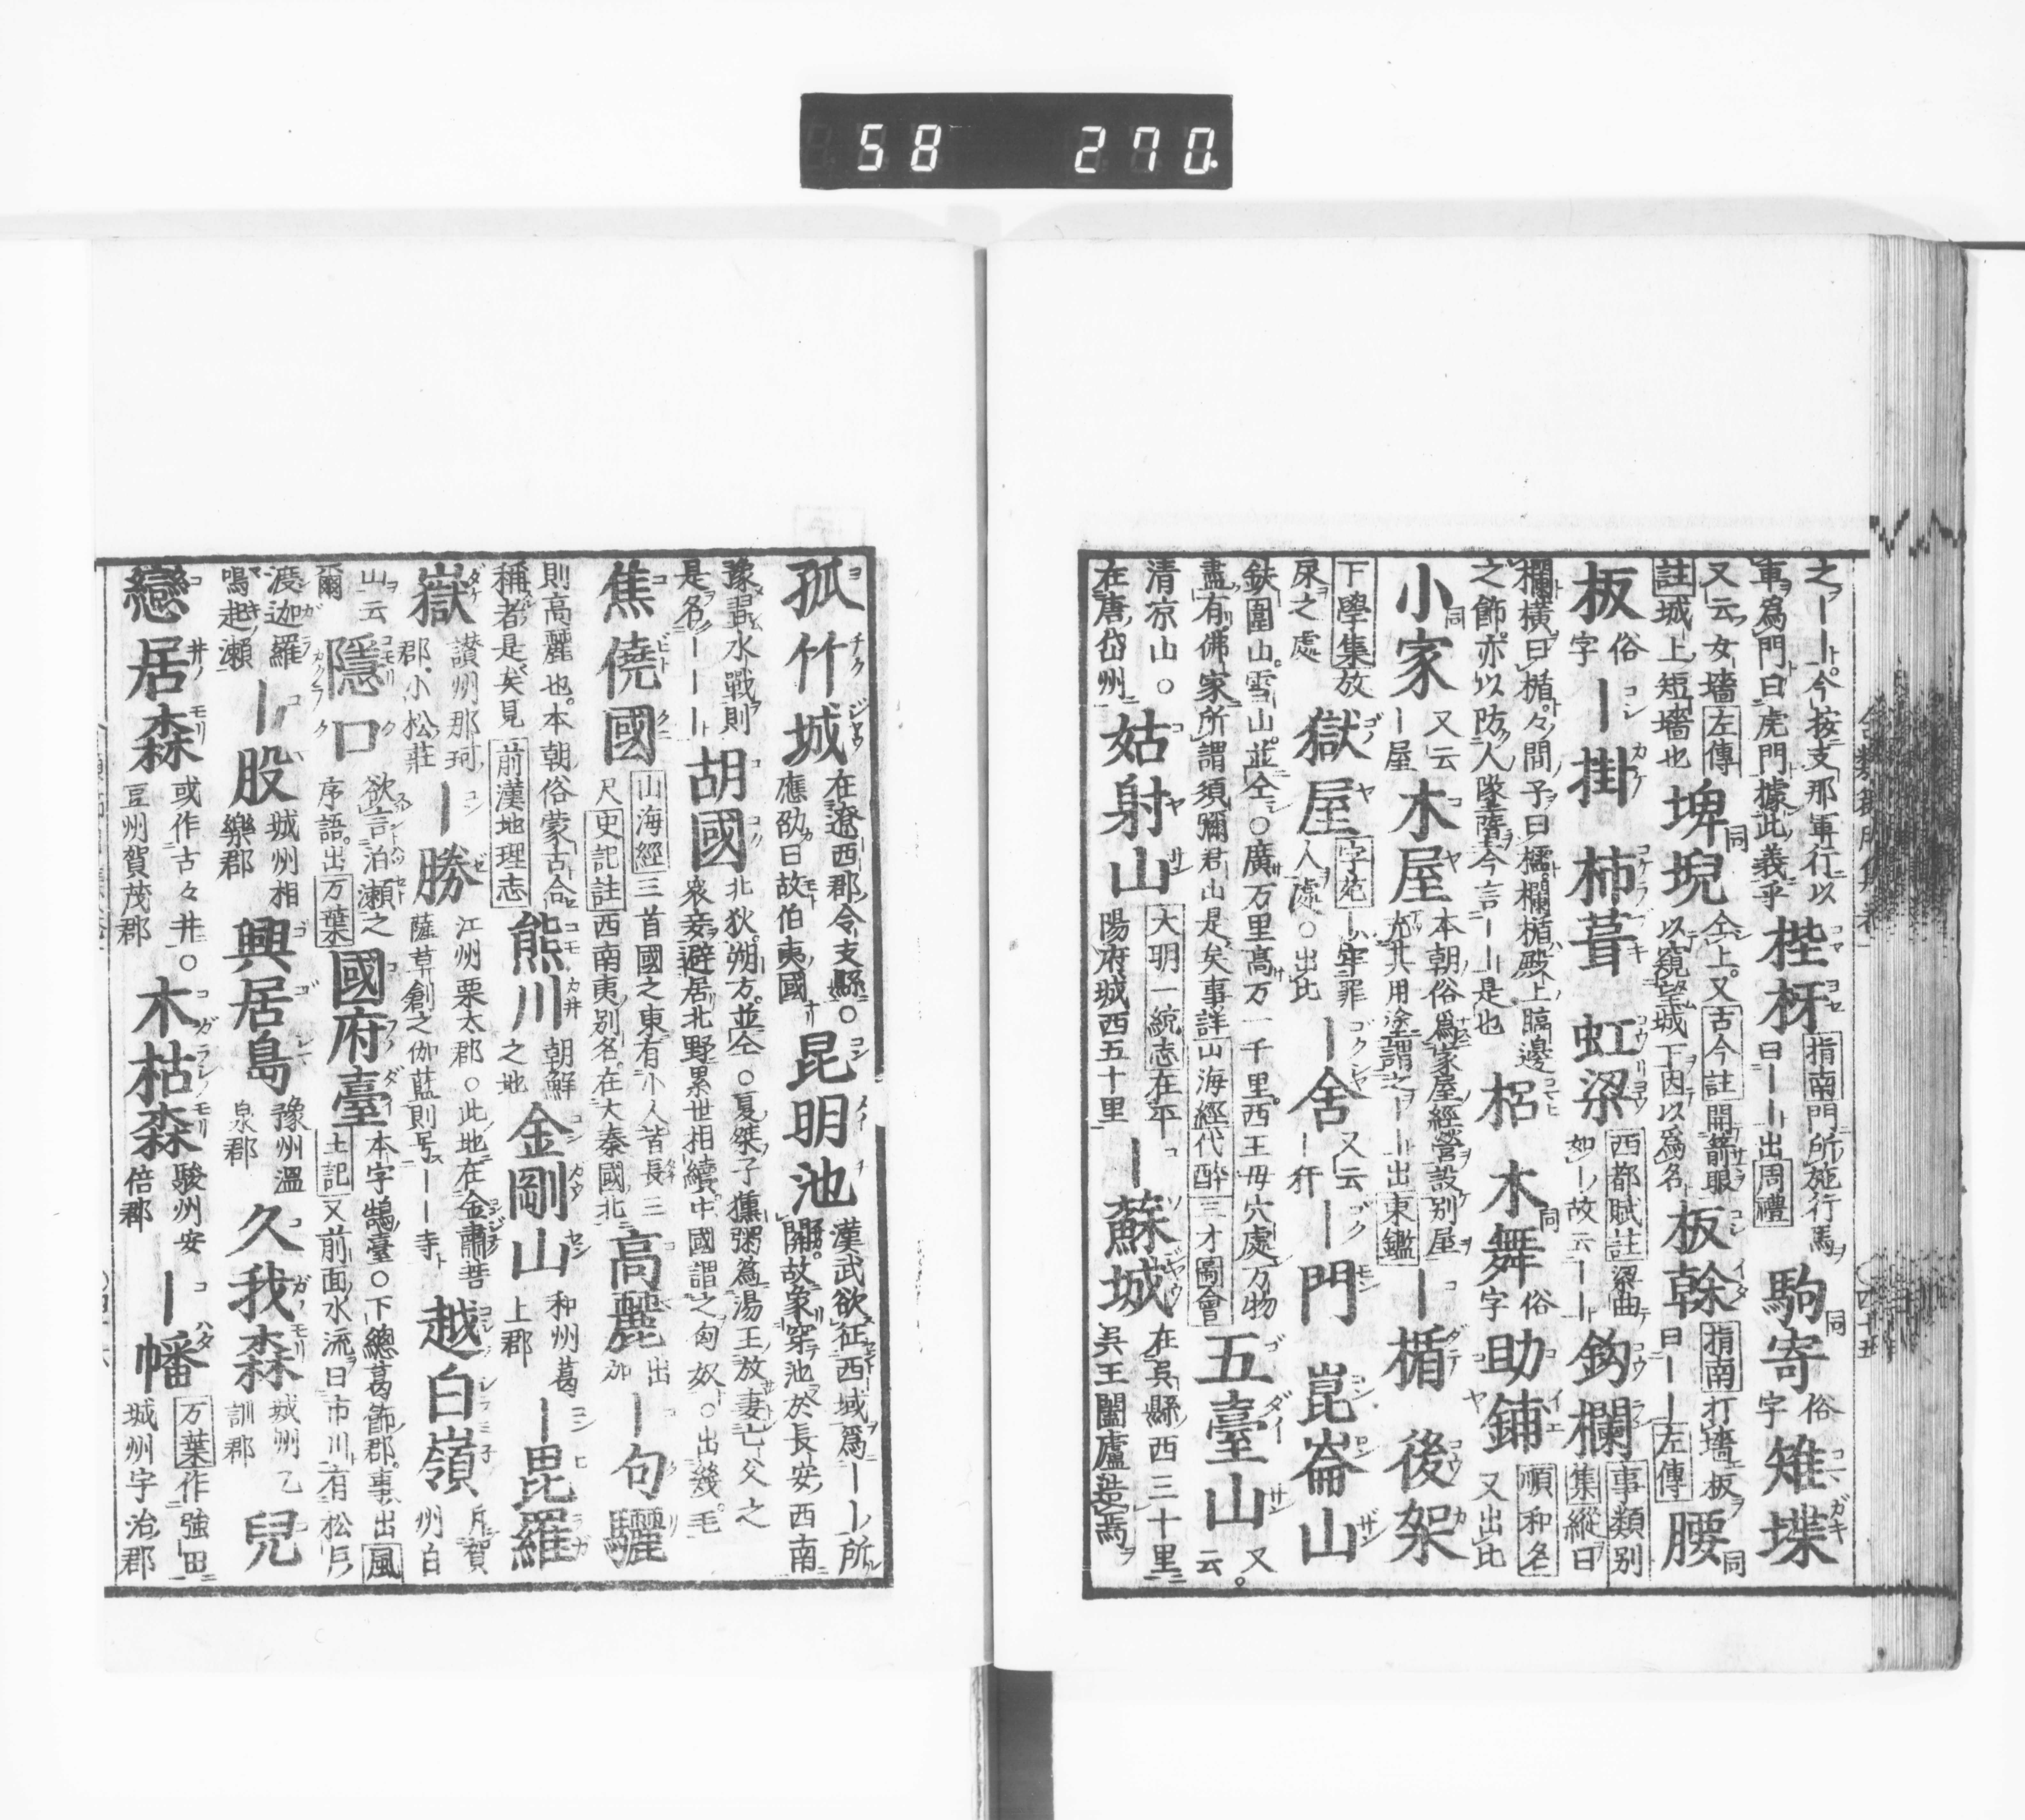 58 270
之ーー。今按支那軍行以
軍爲門曰虎門據此義乎
梐枑
指南門所施行馬
曰ーー出周禮
駒寄
同
俗
字
雉堞
又云女墻左傳
註城上短墻也
埤堄
同
仝上。又古今註開箭眼
以窺望城下因以爲名
板幹
指南打墻板
曰ーー左傳
腰
同
板
俗
字
ー掛
柿葺
虹梁
西都賦註梁曲
如ー故云ーー
鈎欄
事類別
集縱曰
欄橫曰楯。々間子曰櫺。欄楯殿上臨邊
之飾。亦以防人墜墮今言ーー是也
梠
木舞
同
俗
字
助鋪
順和名
又出比
小家
同
又云
ー屋
木屋
本朝俗爲家屋經營設別屋
充其用塗謂之ーー出東鑑
ー楯
後架
下學集放
屎之處
獄屋
字苑ー牢罪
人處○出比
ー舍
又云
ー犴
ー門
崑崙山
鉄圍山。雪山。並仝○廣万里高万一千里。西王母穴處万物
盡有佛家所謂須彌君山是矣事詳山海經代醉三才圖會
五臺山
又
云
清凉山。○
在唐岱州
姑射山
大明一統志在平
陽府城西五十里
ー蘇城
在吳縣西三十里
吳王闔廬造焉
孤竹城
在遼西郡令支縣○
應劭曰故伯夷國
昆明池
漢武欲征西域爲ーー所
閉。故象穿池於長安西南
豫習水戰則
是名ーーー
胡國
北狄。朔方。並仝○夏桀子獯粥爲湯王放妻亡父之
衆妾避居北野累世相續中國謂之匈奴○出幾。毛
焦僥國
山海經三首國之東有小人皆長三
尺史記註西南夷別名。在大秦國北
高麗
出
加
ー句驪
則高麗也。本朝俗蒙古合
稱者是矣見前漢地理志
熊川
朝鮮
之地
金剛山
和州葛
上郡
ー毘羅
嶽
讃州那珂
郡小松莊
ー勝
江州栗太郡○此地在金肅菩
薩草創之伽藍則号ーー寺
越白嶺
斥賀
州白
山云
爾
隱口
欲言泊瀬之
序語。出万葉
國府臺
本字鵠臺○下總葛飾郡。事出風
土記又前面水流曰市川有松戶
渡迦羅
鳴起瀬
ー股
城州相
樂郡
興居島
豫州溫
泉郡
久我森
城州乙
訓郡
兒
戀居森
或作古々井○
豆州賀茂郡
木枯森
駿州安
倍郡
ー幡
万葉作強田
城州宇治郡